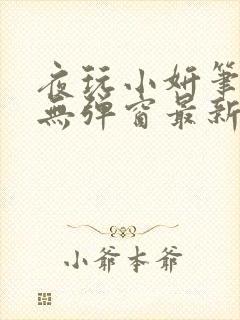 夜玩小妍筆
無彈窗最新
小爺本爺